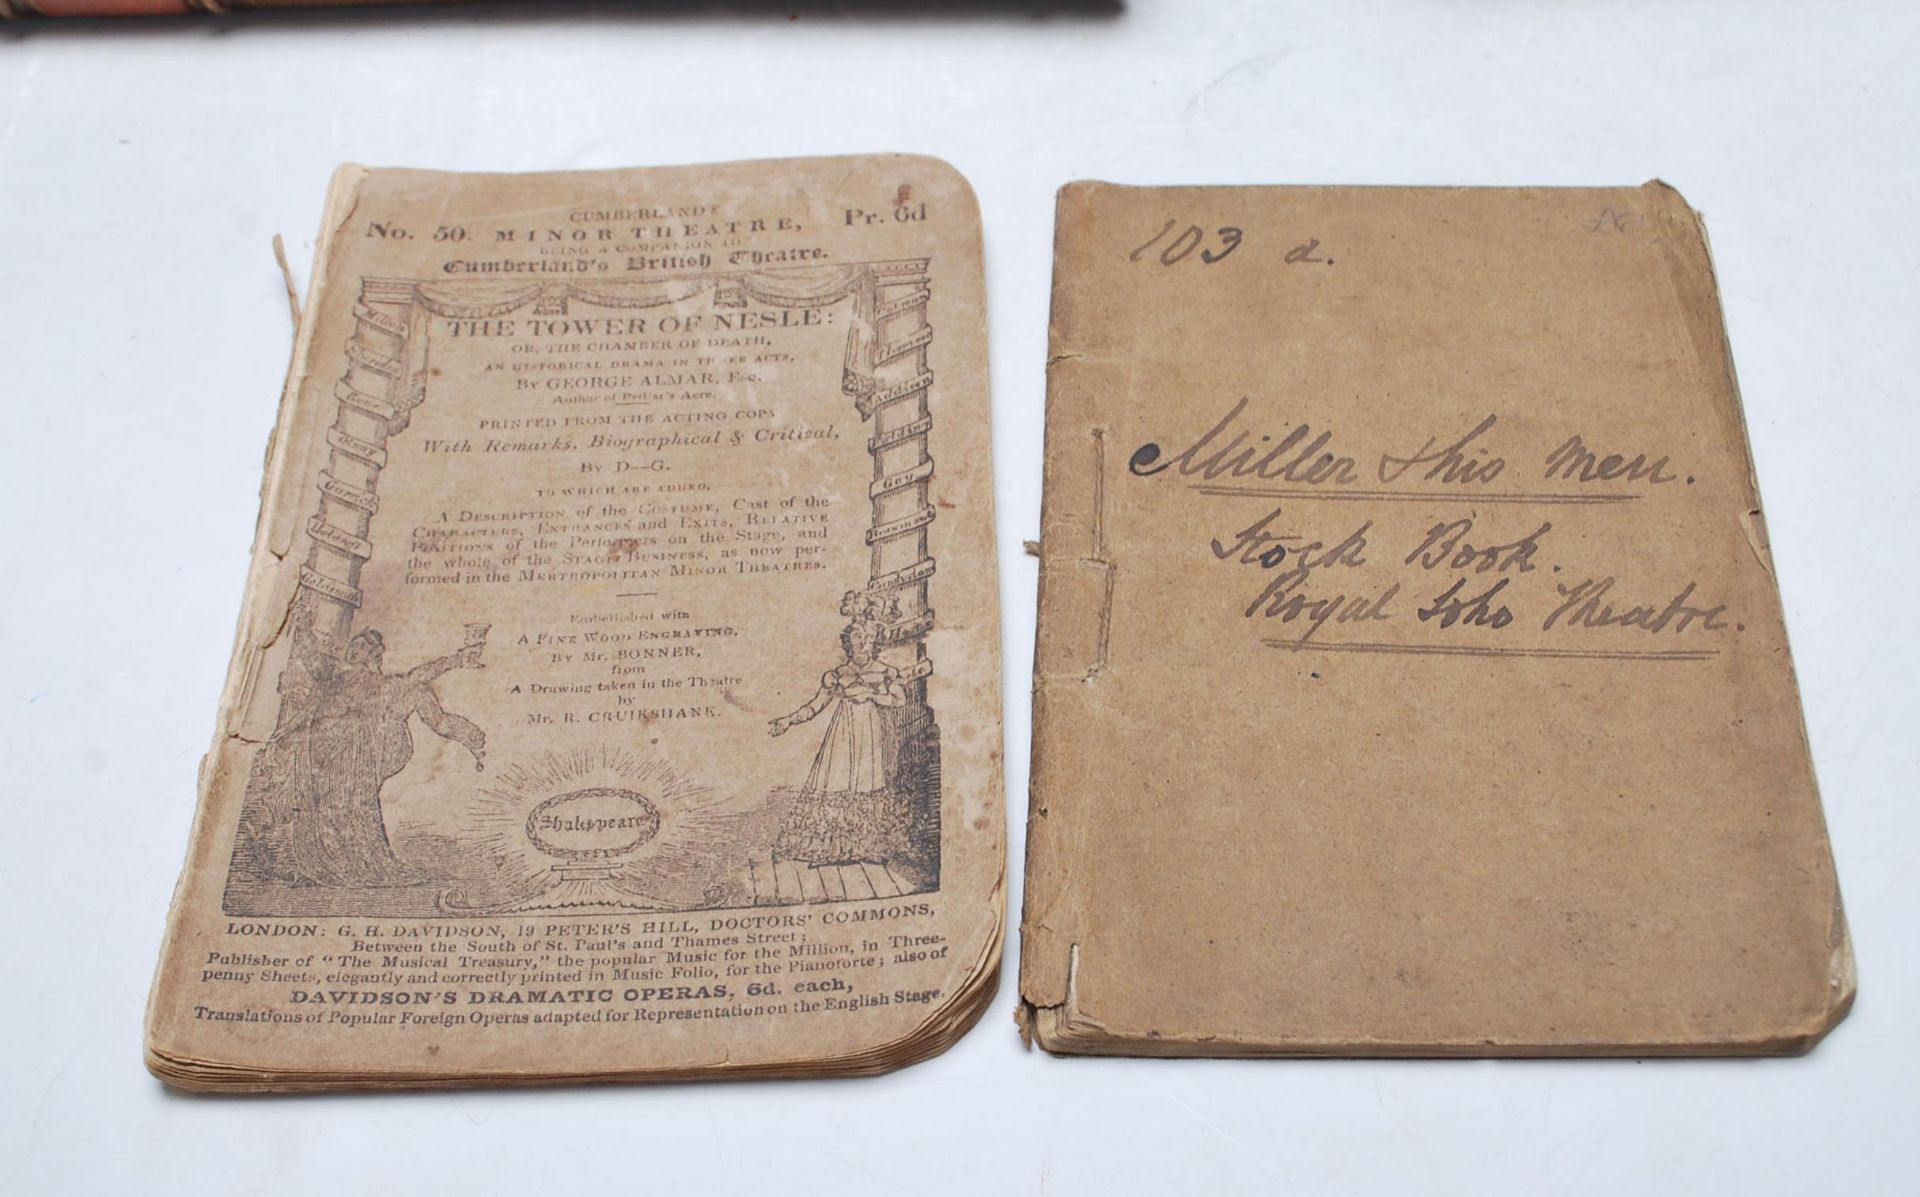 CUMBERLAND'S
No. 50. MINOR THEATRE, Pr. 6d
BEING A COMPANION TO
Cumberland's British Theatre.
THE TOWER OF NESLE:
OR, THE CHAMBER OF DEATH,
AN HISTORICAL DRAMA IN THREE ACTS,
By GEORGE ALMAR, Esq.
Author of Pedlar's Acre.
PRINTED FROM THE ACTING COPY
With Remarks, Biographical & Critical,
By D—G.
TO WHICH ARE ADDED,
A DESCRIPTION of the COSTUME, Cast of the
CHARACTERS, ENTRANCES and EXITS, RELATIVE
POSITIONS of the Performers on the Stage, and
the whole of the STAGE BUSINESS, as now per-
formed in the MERTROPOLITAN MINOR THEATRES.
Embellished with
A FINE WOOD ENGRAVING,
By Mr. BONNER,
from
A Drawing taken in the Theatre
by
Mr. R. CRUIKSHANK.
Milton
Sheridan
Rowe
Otway
Garrick
Holcroft
Goldsmith
Colman
Thomson
Addison
Fielding
Gay
Beaumont
Cumberland
Shakspeare
LONDON: G. H. DAVIDSON, 19 PETER'S HILL, DOCTORS' COMMONS,
Between the South of St. Paul's and Thames Street;
Publisher of "The Musical Treasury," the popular Music for the Million, in Three-
penny Sheets, elegantly and correctly printed in Music Folio, for the Pianoforte; also of
DAVIDSON'S DRAMATIC OPERAS, 6d. each,
Translations of Popular Foreign Operas adapted for Representation on the English Stage.
103 a.
Miller & his Men.
Stock Book.
Royal Soho Theatre.